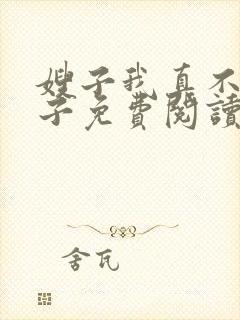 嫂子我真不
子免費閱讀
舍瓦